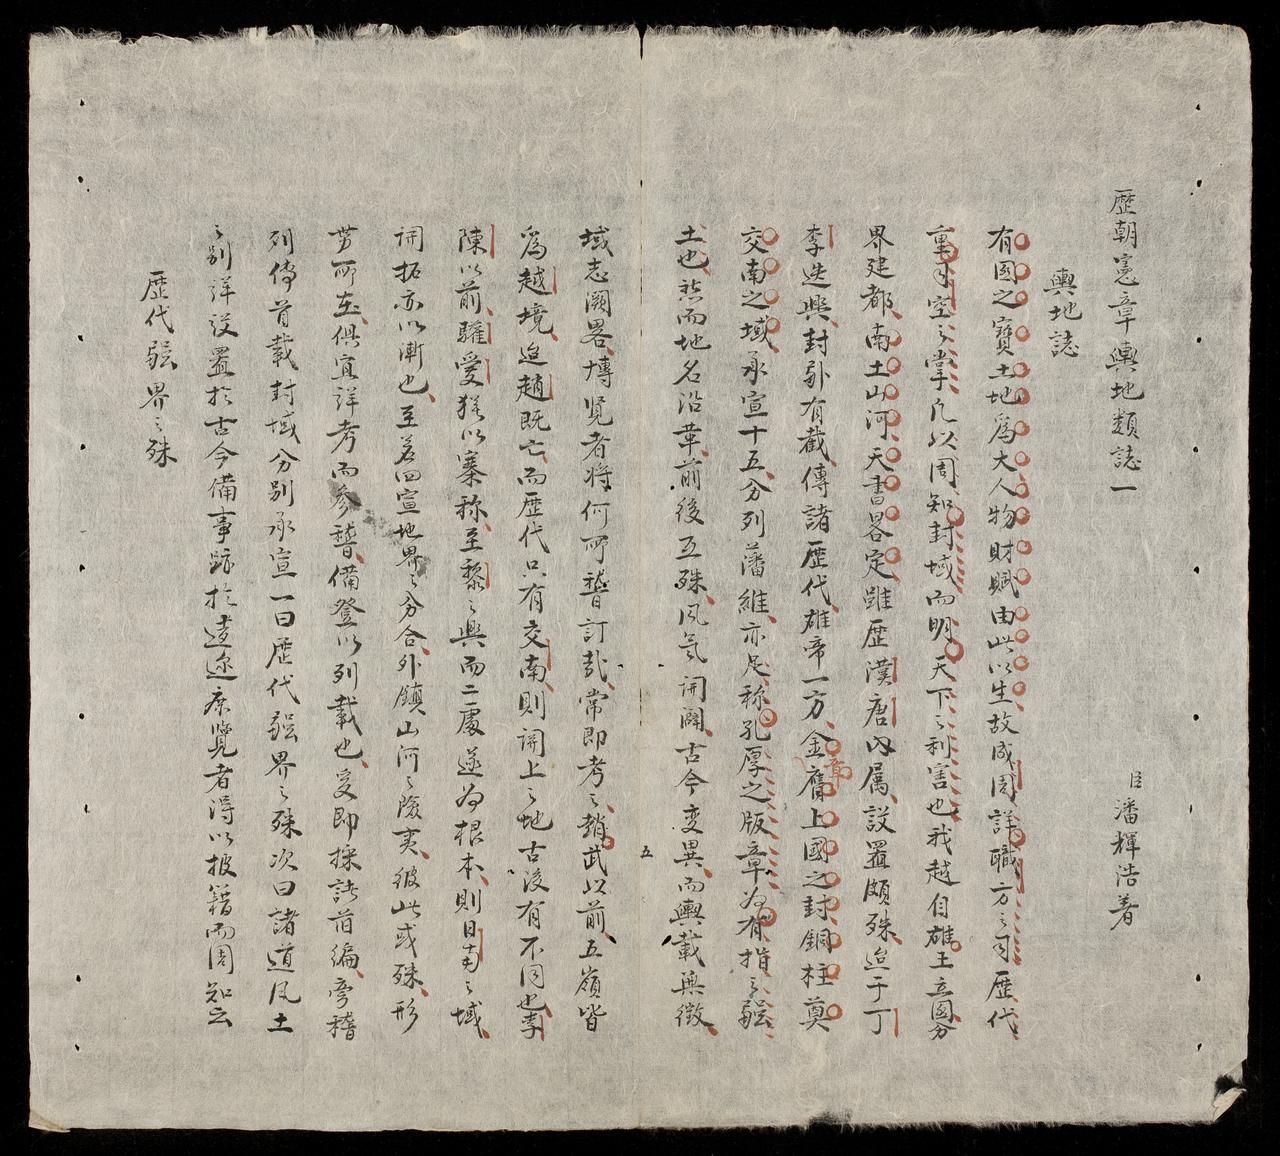 歷朝憲章輿地類誌一
臣潘輝浩着
輿地誌
有國之寶土地爲大人物財賦由此以生故成周詳職方之司歷代
重司空之掌凡以周知封域而明天下之利害也我越自雄王立國分
界建都南土山河天書畧定雖歷漢唐內属設置頗殊迨于丁
李迭興封卧有截傳諸歷代雄帝一方金膺上國之封銅柱奠
章
交南之域承宣十五分列藩維亦足称孔厚之版章為有指之疆
土也然而地名沿革前後互殊風氣開闢古今变異而輿載無徵
五
域志濶畧博览者将何所諬訂哉常即考之趙武以前五嶺皆
爲越境迨趙既亡而歷代只有交南則開上之地古後有不同也李
陳以前驩爱猶以寨称至黎之興而二處遂为根本則日南之域
開拓亦以漸也至若四宣地界之分合外鎮山河之險夷彼此或殊形
势所在俱宜詳考而参稽備登以列載也爰即採訪前編旁稽
列傳首載封域分別承宣一曰歷代疆界之殊次曰諸道风土
之别詳設置於古今備事跡於遠迩庶覽者得以披籍而周知云
歷代疆界之殊